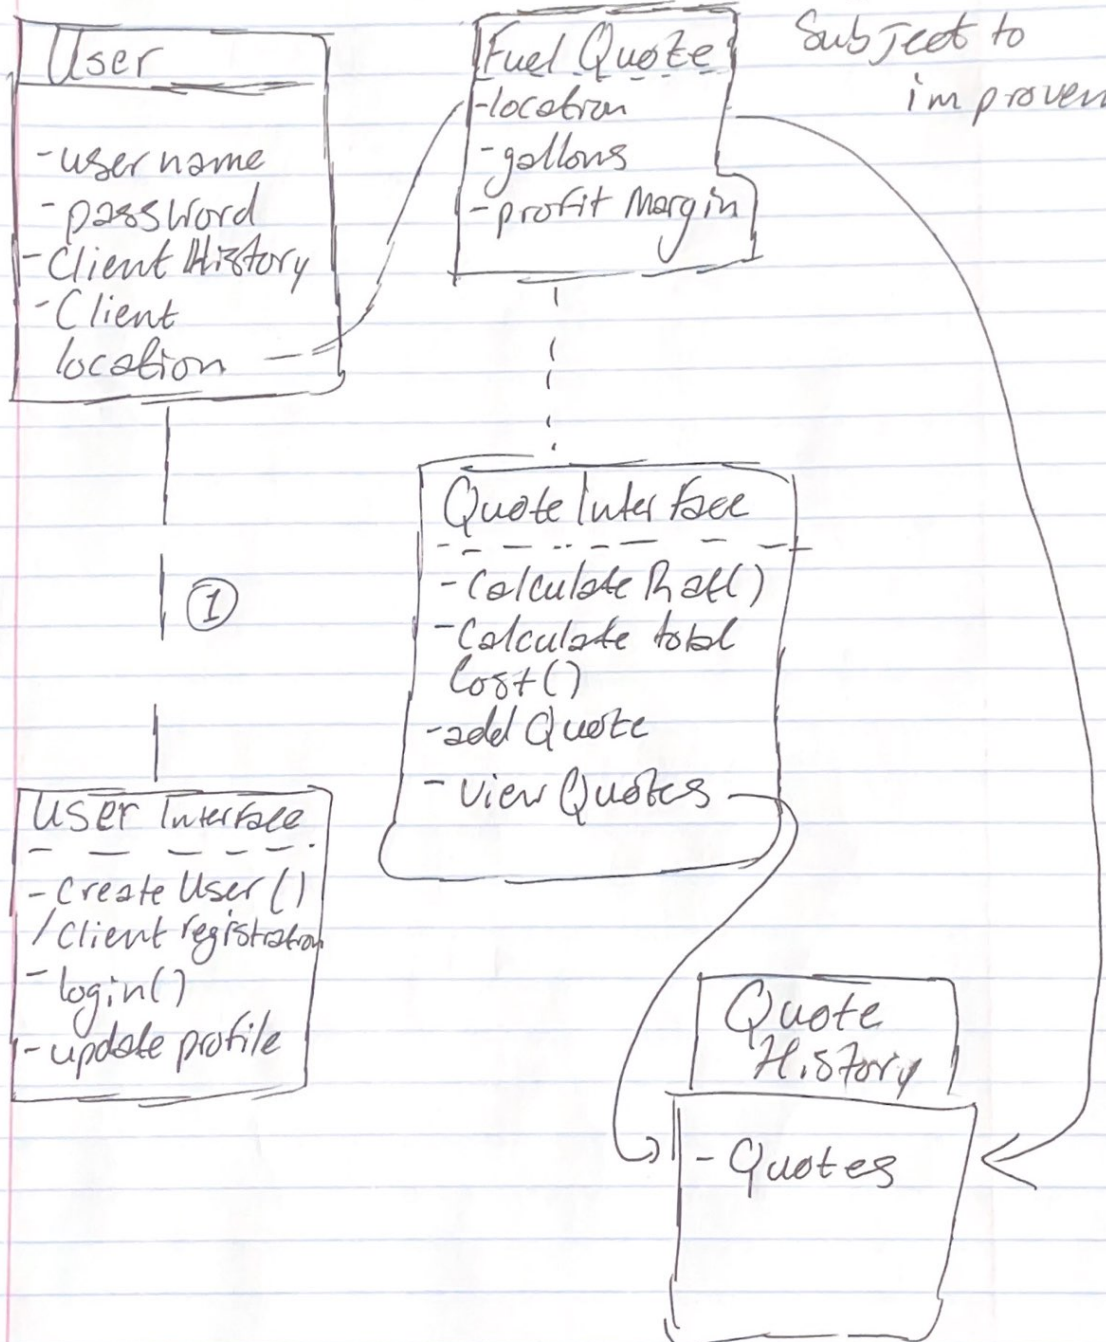 User
- username
- password
- Client History
- Client
location
Fuel Quote
- location
- gallons
- profit Margin
Subject to
Quote Interface
- Calculate Rate()
- Calculate total
Cost()
- add Quote
- View Quotes
①
User Interface
- Create User()
/Client registration
- login()
- update profile
Quote
History
- Quotes